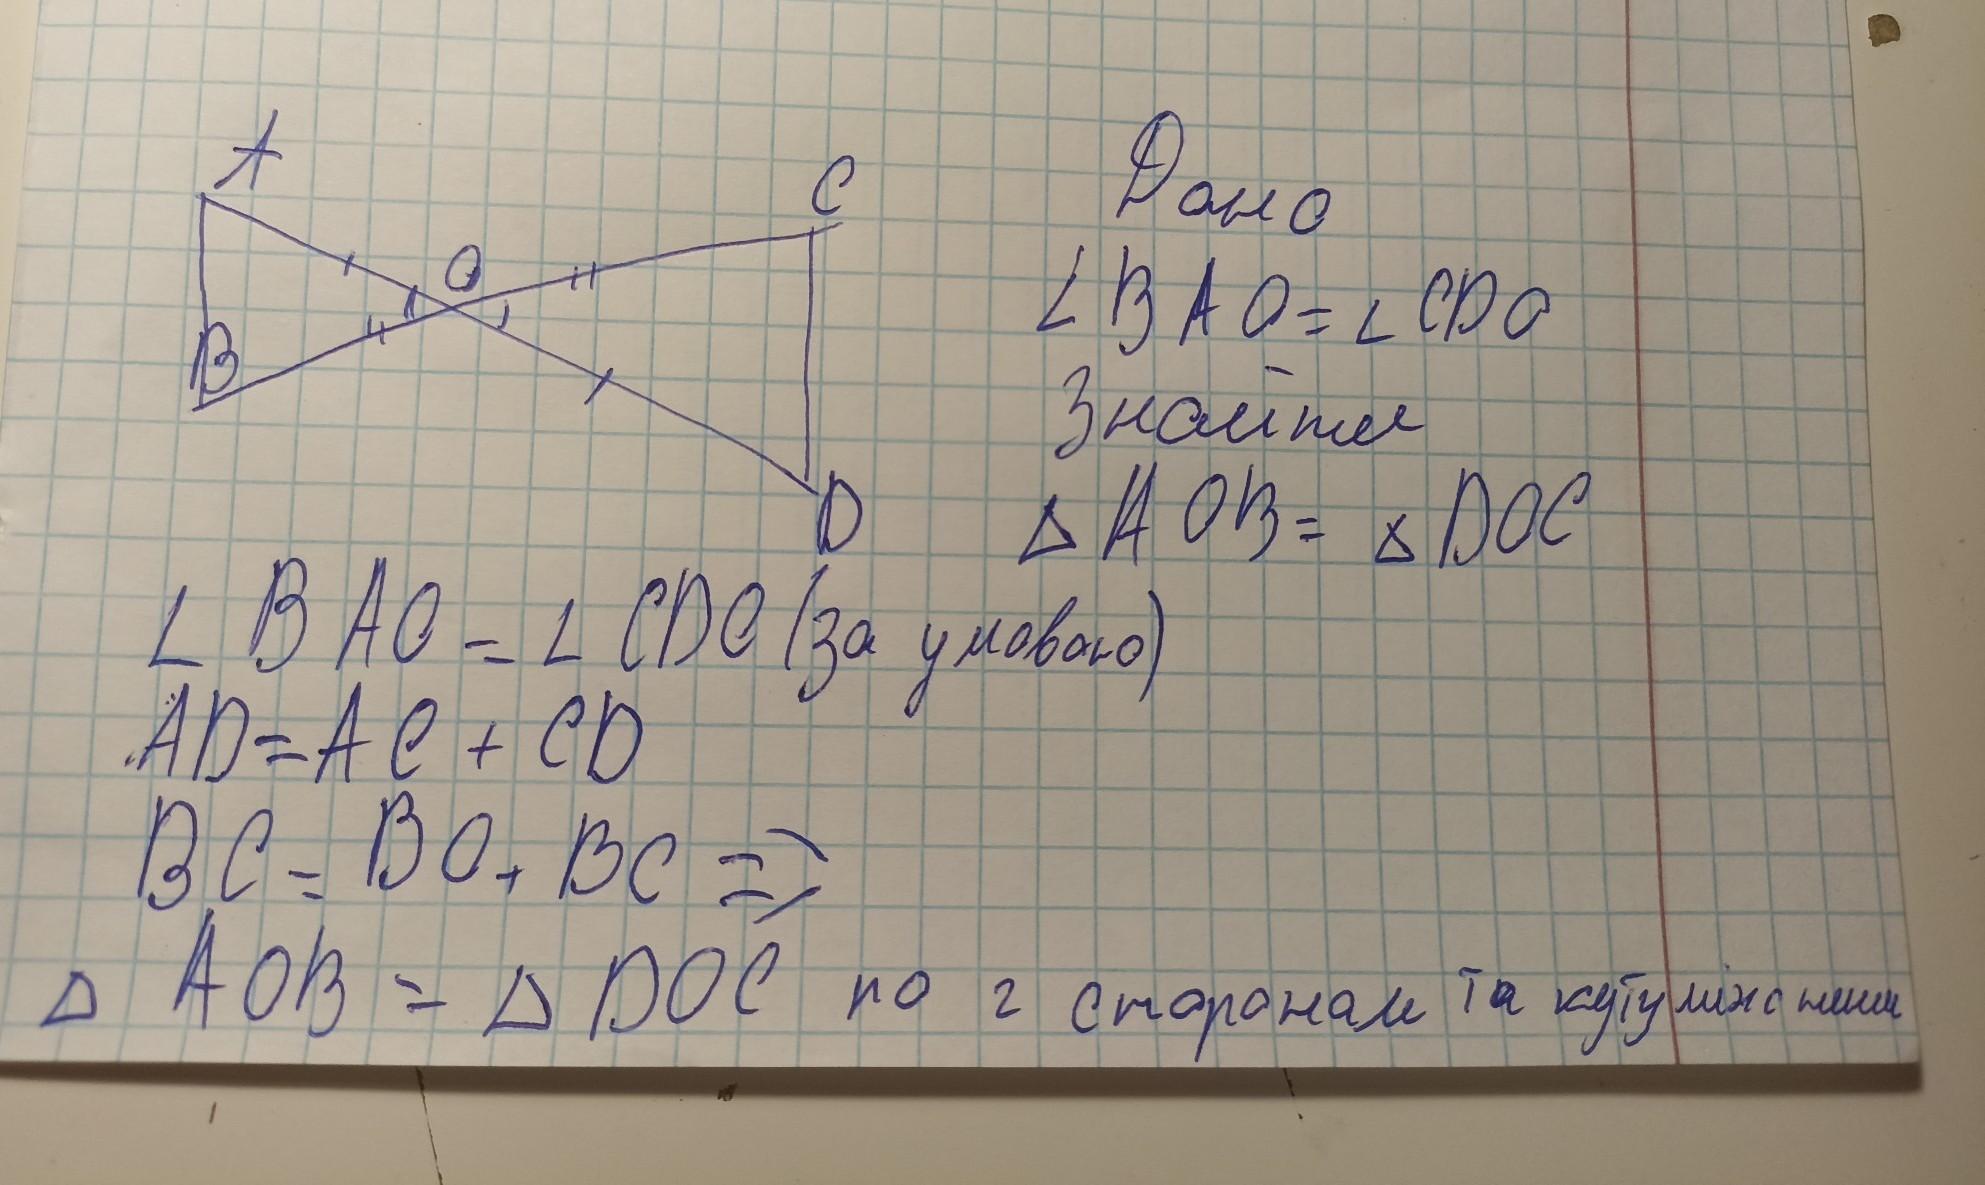 A
C
O
B
D
Дано
∠BAO=∠CDO
Знайти
△AOB=△DOC
∠BAO=∠CDO (за умовою)
AD=AC+CD
BC=BO+BC =>
△AOB=△DOC по 2 сторонам та куту між ними